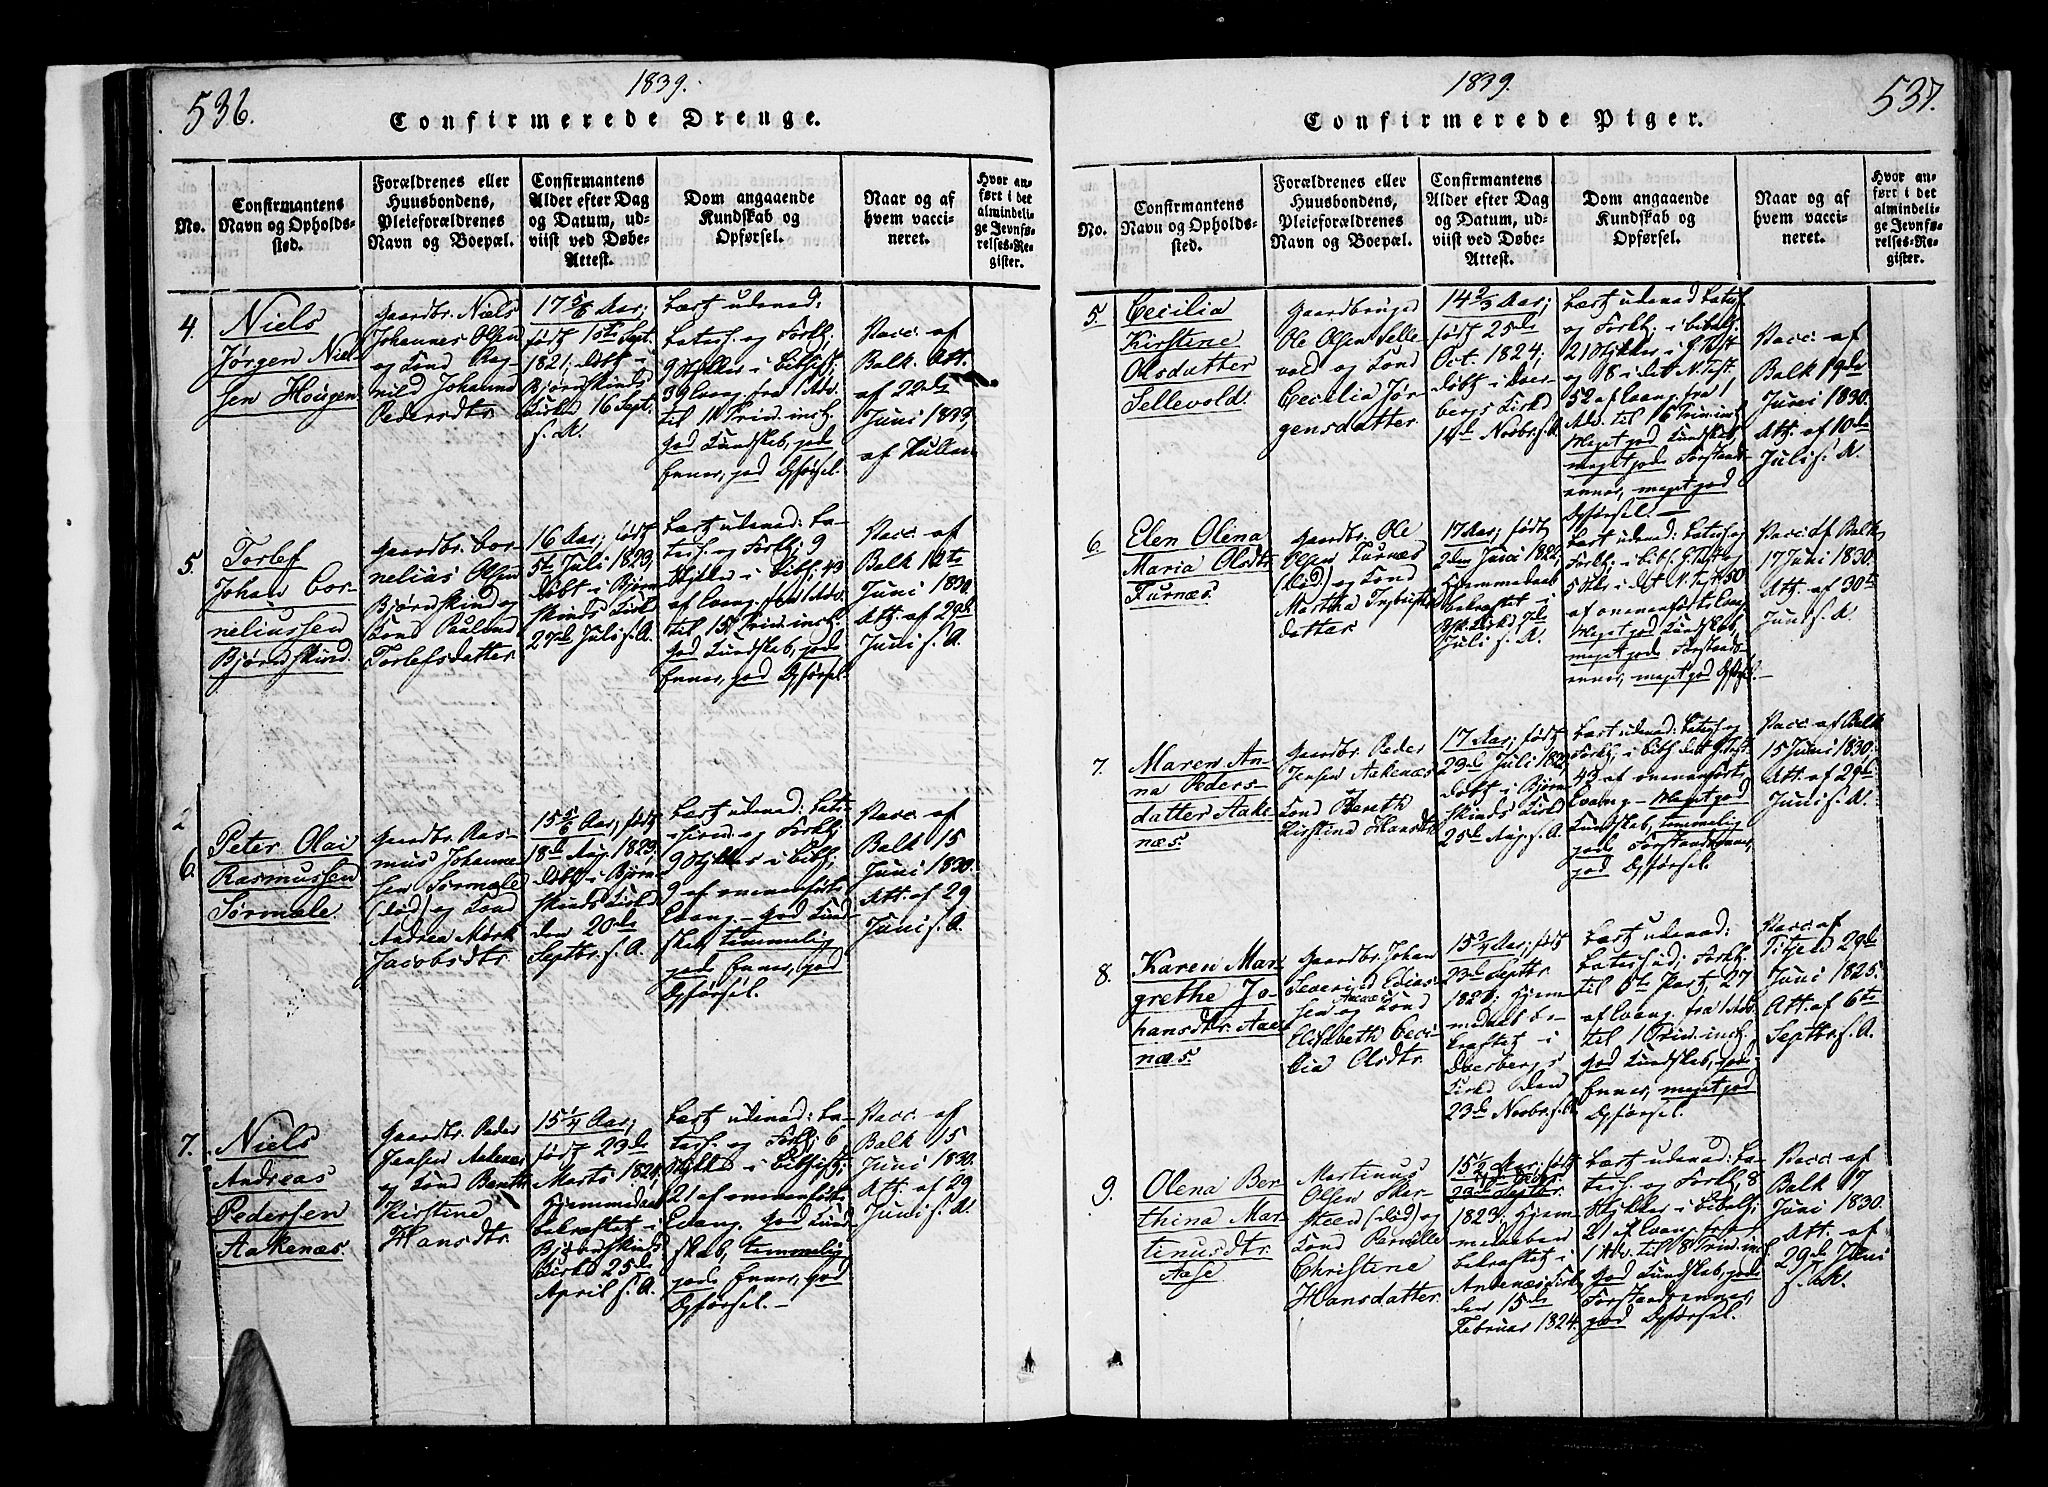 536.
1839.
Confirmerede Drenge.
No.
Confirmantens
Navn og Opholds-
sted.
Forældrenes eller
Huusbondens,
Pleieforældrenes
Navn og Boepæl.
Confirmantens
Alder efter Dag
og Datum, ud-
viist ved Døbe-
Attest.
Dom angaaende
Kundskab og
Opførsel.
Naar og af
hvem vacci-
neret.
Hvor an-
ført i det
almindeli-
ge Jevnfø-
relses-Re-
gister.
4.
Niels
Jørgen Niel-
sen Hougen
Gaardbr. Niels
Johannes Olsen
og Kone Rag-
nild Johanna
Pedersdtr.
17 5/6 Aar;
født 1ste Sept.
1821; døbt i
Bjørnskinds
Kirke 16 Sept.
s. A.
Læst udenad:
Catech. og Forkl;
9 Stykker i Bibhist;
39 Evang. fra 1 Adv.
til 11 Trin. incl.
God Kundskab, gode
Evner, god Opførsel.
Vacc. af
Balk. Att.
af 22de
Juni 1839,
af
5.
Torlef
Johan Cor-
neliussen
Bjørnskind.
Gaardbr. Cor-
nelius Olsen
Bjørnskind og
Kone Paulona
Torlefsdatter.
16 Aar; født
5te Juli 1823,
Døbt i Bjørn-
skinds Kirke
27de Juli s. A.
Læst udenad: Ca-
tech. og Forkl; 9
Stykker i Bibh; 43
af Evang. fra 1 Adv.
til 15 Trin. incl.
God Kundskab, gode
Evner, god Opførsel.
Vacc. af
Balk 12te
Juni 1830.
Att. af 29de
Juni s. A.
6.
Peter Olai
Rasmussen
Sørmæle.
Gaardbr. Ras-
mus Johanne-
sen Sørmæle
(død) og Kone
Andrea Mørk
Jacobsdtr.
15 5/6 Aar; født
18de Aug. 1823,
Døbt i Bjørn-
skinds Kirke
den 20de
Septbr. s. A.
Læst udenad: Cate-
chism. og Forkl;
9 Stykker i Bibh;
9 af ovenanførte
Evang. – God Kund-
skab, temmelig
gode Evner, god
Opførsel.
Vacc. af
Balk 15
Juni 1830.
Att. af 29
Juni s. A.
7.
Niels
Andreas
Pedersen
Aakenæs.
Gaardbr. Peder
Jensen Aakenæs
og Kone Benth
Kirstine
Hansdtr.
15 1/4 Aar;
født 23de
Marts 1824,
Hjemmedaab
bekræftet i
Bjørnskinds
Kirke 25de
April s. A.
Læst udenad: Ca-
tech. og Forkl; 6
Stykker i Bibhist;
21 af ovenanførte
Evang. God Kund-
skab, temmelig
gode Evner, god
Opførsel. –
Vacc. af
Balk 15
Juni 1830.
Att. af 29
Juni s. A.
1839.
537.
Confirmerede Piger.
No.
Confirmantens
Navn og Opholds-
sted.
Forældrenes eller
Huusbondens,
Pleieforældrenes
Navn og Boepæl.
Confirmantens
Alder efter Dag
og Datum, ud-
viist ved Døbe-
Attest.
Dom angaaende
Kundskab og
Opførsel.
Naar og af
hvem vacci-
neret.
Hvor an-
ført i det
almindeli-
ge Jevnfø-
relses-Re-
gister.
5.
Cecilia
Kirstine
Olsdatter
Sellevold.
Gaardbruger
Ole Olsen Selle-
vold og Kone
Cecilia Jør-
gensdatter.
14 2/3 Aar;
født 25de
Oct. 1824;
døbt i Dver-
bergs Kirke
14de Novbr. s. A.
Læst udenad Catech.
og Forkl; i Bibelh.
21 Stykker i G. Test
og 18 i det N. Test.
52 af Evang. fra 1
Adv. til 16 Trin. incl.
Meget god Kundskab,
meget gode Forstands-
evner, meget god
Opførsel. —
Vacc. af
Balk 19de
Juni 1830.
Att. af 10de
Juli s. A.
6.
Elen Olena
Maria Olsdtr.
Turnæs.
Gaardbr. Ole
Olsen Turnæs
(død) og Kone
Martha Ingbrigts-
datter.
17 Aar; født
2den Juni 1822,
Hjemmedaab
bekræftet i
Bjsk. Kirke 7de
Juli s. A.
Læst udenad: Catech og
Forkl; i Bibh. G. Test og
5 Stkr i det N. Test. 50
af ovenanførte Evang.
Meget god Kundskab,
meget gode Forstands-
evner, meget god Opførsel. —
Vacc. af Balk
17 Juni 1830.
Att. af 30te
Juni s. A.
7.
Maren An-
na Peders-
datter Aake-
næs.
Gaardbr. Peder
Jensen Aakenæs
Kone Benth
Kirstine Hansdtr.
17 Aar; født
23de Juli 1822,
døbt i Bjørn-
skinds Kirke
25de Aug. s. A.
Læst udenad: Catech og
Forkl; i Bibh det G. Test.
43 af ovenanførte
Evang. – Meget god
Kundskab, temmelig
gode Forstandsevner,
god Opførsel.
Vacc. af Balk
15 Juni 1830.
Att. af 29de
Juni s. A.
8.
Karen Mar-
grethe Jo-
hansdtr. Aase-
næs.
Gaardbr. Johan
Severin Edias-
sen og Kone
Elisabeth Ceci-
lia Olsdtr.
15 3/4 Aar; født
23de Septbr.
1823; Hjem-
medaab be-
kræftet i
Dverbergs
Kirke den
23de Novbr. s. A.
Læst udenad:
Catechis; Forkl.
til 5te Part, 27
af Evang. fra 1 Adv.
til 1 Trin. incl.
God Kundskab, gode
Evner, meget god
Opførsel.
Vacc. af
29de
Juni 1825.
Att. af 6te
Septbr. s. A.
9.
Olena Ber-
thina Mar-
tinusdtr.
Aase
Martinus
Olsen Skar-
steen (død) og
Kone Pernille
Christine
Hansdatter.
15 1/2 Aar; født
1823. Hjem-
medaaben
bekræftet i
Andenæs Kirke,
den 15de
Februar 1824.
Læst udenad: Ca-
tech. og Forkl, 8
Stykker i Bibelh;
21 af Evang. fra
1 Adv. til 8 Trin. incl.
God Kundskab, gode
Forstandsevner,
god Opførsel.
Vacc. af
Balk 17
Juni 1830.
Att. af
29de Juni
s. A.